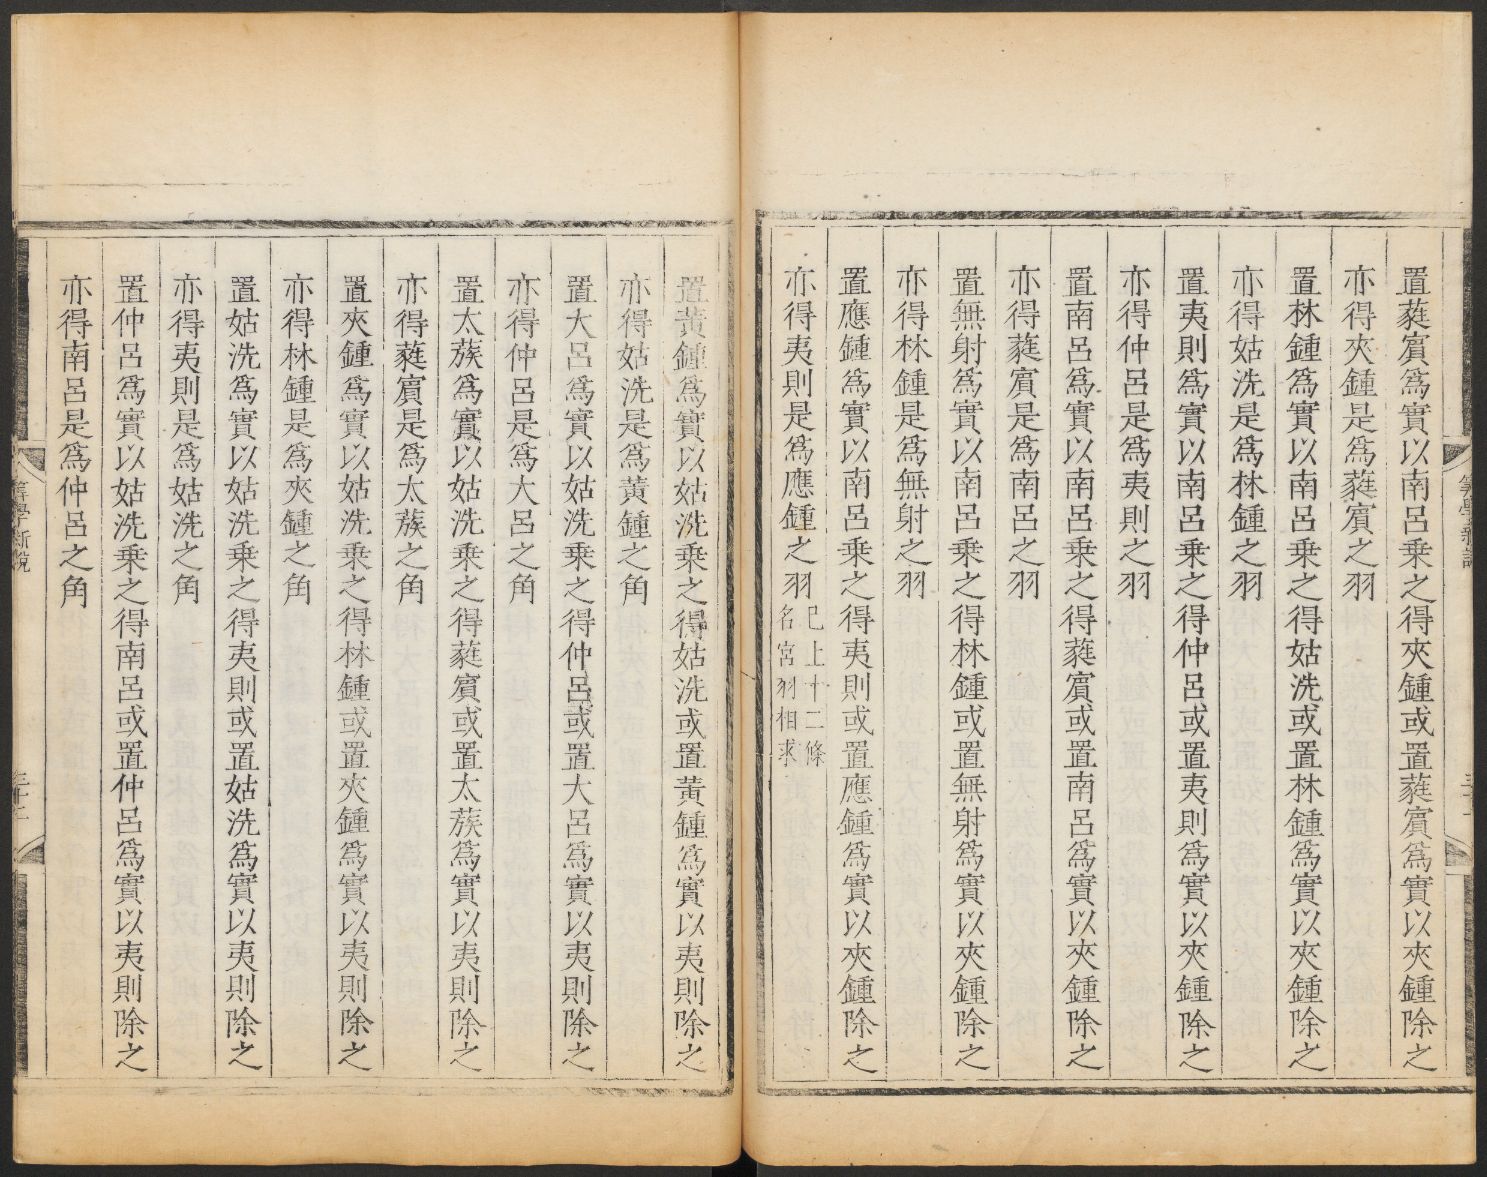 置蕤賔爲實以南呂乗之得夾鍾或置蕤賔爲實以夾鍾除之
亦得夾鍾是爲蕤賔之羽
置林鍾爲實以南呂乗之得姑洗或置林鍾爲實以夾鍾除之
亦得姑洗是爲林鍾之羽
置夷則爲實以南呂乗之得仲呂或置夷則爲實以夾鍾除之
亦得仲呂是爲夷則之羽
置南呂爲實以南呂乗之得蕤賔或置南呂爲實以夾鍾除之
亦得蕤賔是爲南呂之羽
置無射爲實以南呂乗之得林鍾或置無射爲實以夾鍾除之
亦得林鍾是爲無射之羽
置應鍾爲實以南呂乗之得夷則或置應鍾爲實以夾鍾除之
亦得夷則是爲應鍾之羽
已上十二條
名宮羽相求
置黃鍾爲實以姑洗乗之得姑洗或置黃鍾爲實以夷則除之
亦得姑洗是爲黃鍾之角
置大呂爲實以姑洗乗之得仲呂或置大呂爲實以夷則除之
亦得仲呂是爲大呂之角
置太蔟爲實以姑洗乗之得蕤賔或置太蔟爲實以夷則除之
亦得蕤賔是爲太蔟之角
置夾鍾爲實以姑洗乗之得林鍾或置夾鍾爲實以夷則除之
亦得林鍾是爲夾鍾之角
置姑洗爲實以姑洗乗之得夷則或置姑洗爲實以夷則除之
亦得夷則是爲姑洗之角
置仲呂爲實以姑洗乗之得南呂或置仲呂爲實以夷則除之
亦得南呂是爲仲呂之角
筭學新說